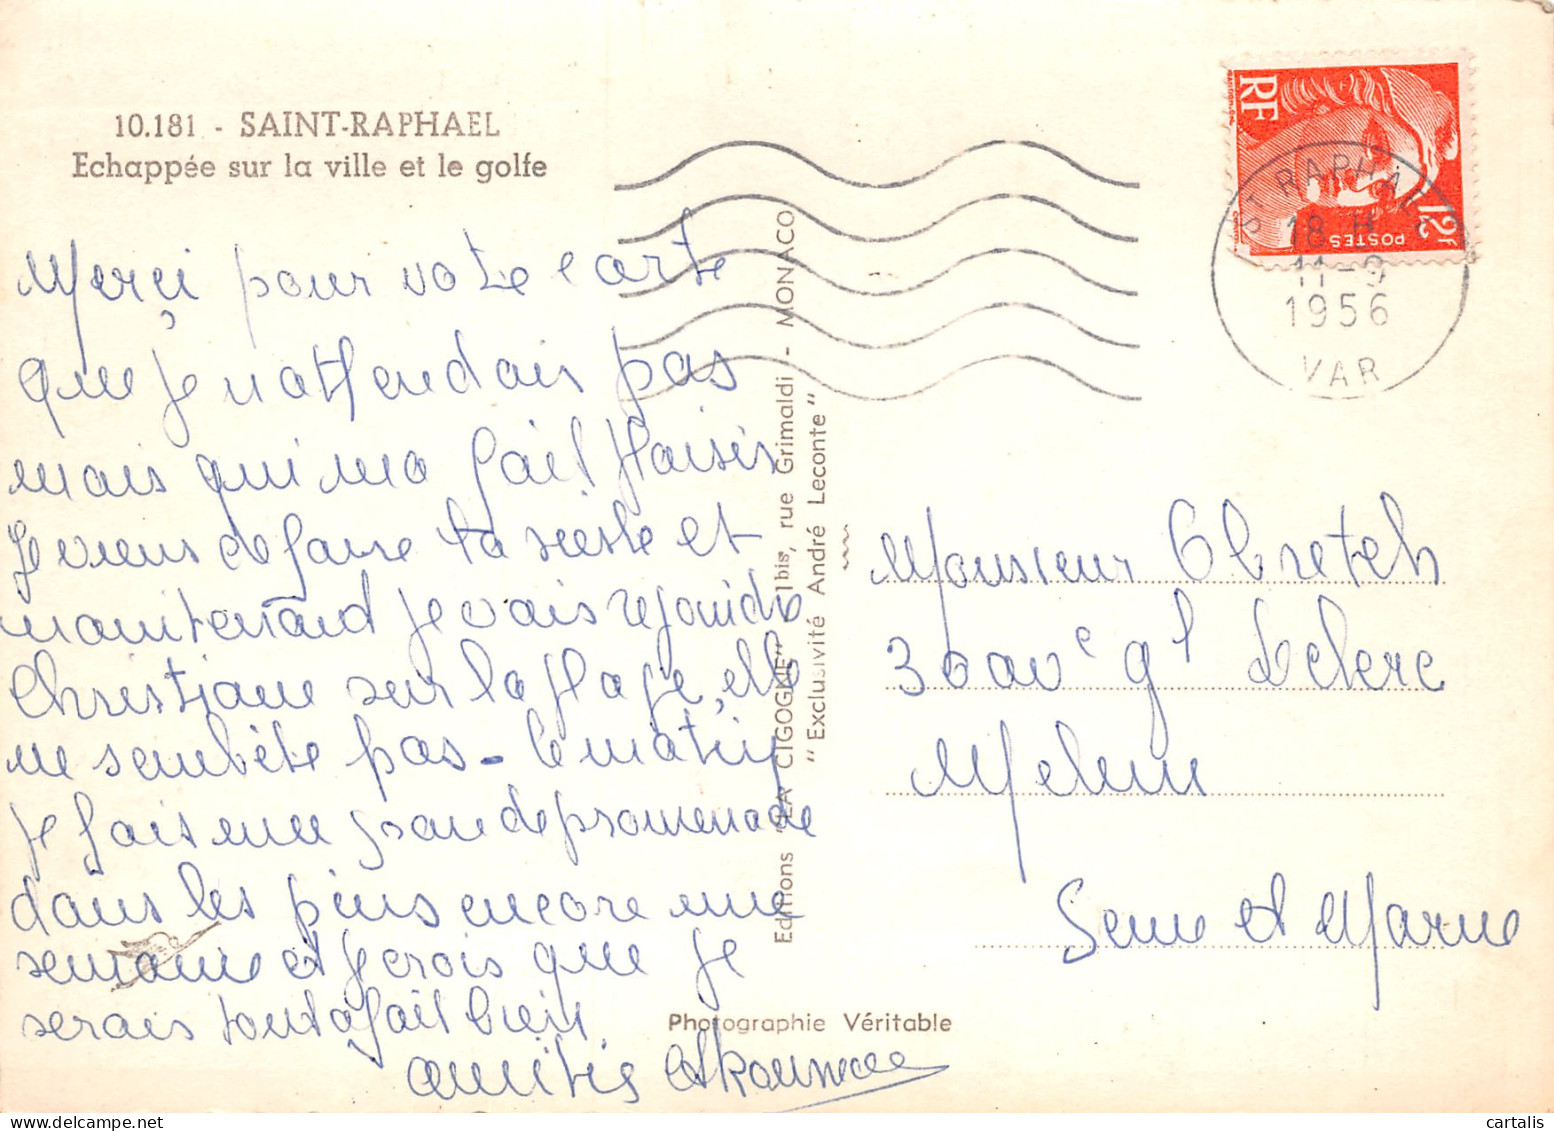 10.181 - SAINT-RAPHAEL
Echappée sur la ville et le golfe
Merci pour votre carte
que je n'attendais pas
mais qui m'a fait plaisir
Je viens de faire la sieste et
maintenant je vais rejoindre
Christiane sur la plage, elle
ne s'embête pas - le matin
je fais une grande promenade
dans les pins encore une
semaine et je crois que je
serais tout à fait bien
amitiés
Editions "LA CIGOGNE" 1bis, rue Grimaldi - MONACO
"Exclusivité André Leconte"
Photographie Véritable
RF
POSTES
12f
ST RAPHAEL
18 H
11-9
1956
VAR
Monsieur Obretch
30 ave gl Leclerc
Melun
Seine et Marne
cartalis